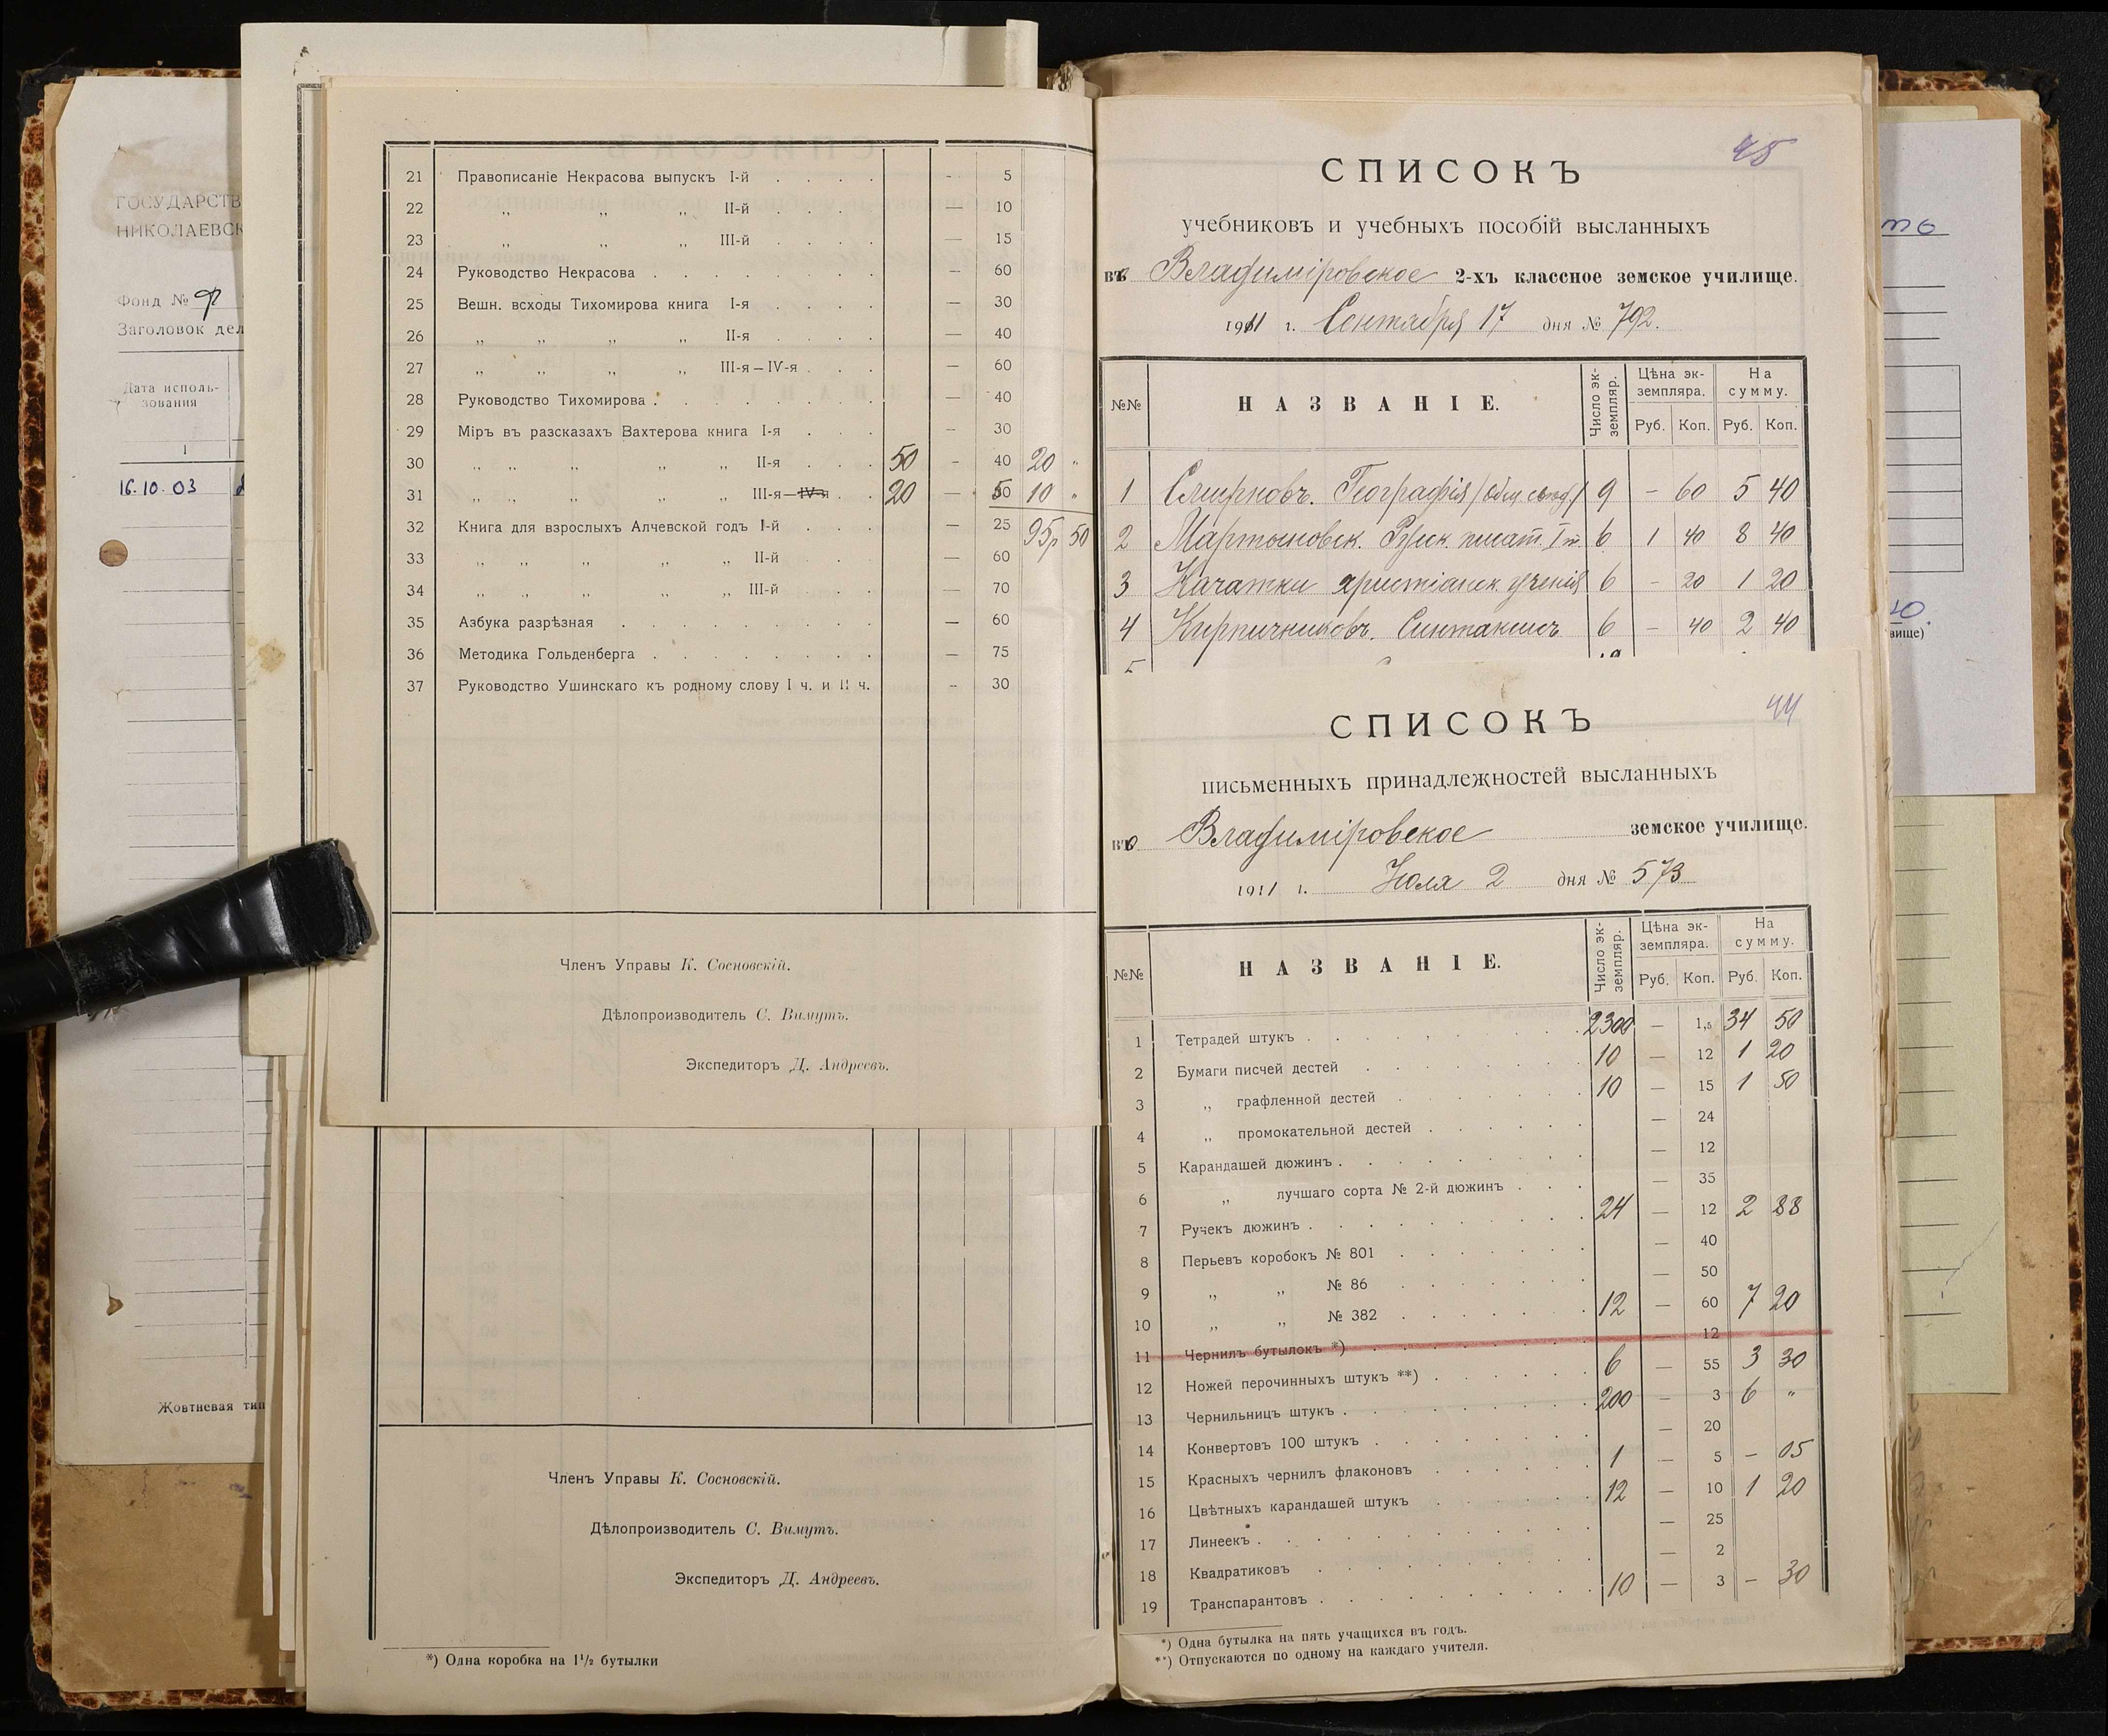 ГОСУДАРСТВ
НИКОЛАЕВСК
Фонд №
Заголовок дел
Дата исполь-
зования
1
16.10.03
Жовтневая тип
21 Правописаніе Некрасова выпускъ I-й . . . . - 5
22 „ „ „ II-й . . . — 10
23 „ „ „ III-й . . . . — 15
24 Руководство Некрасова . . . . . . . . — 60
25 Вешн. всходы Тихомирова книга I-я . . . . — 30
26 „ „ „ „ II-я . . . . — 40
27 „ „ „ „ III-я – IV-я . . . — 60
28 Руководство Тихомирова . . . . . . . . — 40
29 Міръ въ разсказахъ Вахтерова книга I-я . . . — 30
30 „ „ „ „ „ II-я . . . . 50 - 40 20 „
31 „ „ „ „ „ III-я—IV-я . . 20 — 50 10 „
32 Книга для взрослыхъ Алчевской годъ I-й . . . — 25 95р 50
33 „ „ „ „ „ II-й . . . — 60
34 „ „ „ „ „ III-й . . . — 70
35 Азбука разрѣзная . . . . . . . . — 60
36 Методика Гольденберга . . . . . . . . — 75
37 Руководство Ушинскаго къ родному слову I ч. и II ч. - 30
Членъ Управы К. Сосновскій.
Дѣлопроизводитель С. Вимутъ.
Экспедиторъ Д. Андреевъ.
Членъ Управы К. Сосновскій.
Дѣлопроизводитель С. Вимутъ.
Экспедиторъ Д. Андреевъ.
*) Одна коробка на 1¹/₂ бутылки
45
СПИСОКЪ
учебниковъ и учебныхъ пособій высланныхъ
во Владиміровское 2-хъ классное земское училище.
1911 г. Сентября 17 дня № 792.
№№ НАЗВАНІЕ. Число эк-земпляр. Цѣна эк-земпляра. На сумму.
Руб. Коп. Руб. Коп.
1 Смирновъ. Географія 9 - 60 5 40
2 Мартыновск. Русск. писат. I т. 6 1 40 8 40
3 Начатки христіанск. ученія 6 - 20 1 20
4 Кирпичниковъ. Синтаксисъ 6 - 40 2 40
5
44
СПИСОКЪ
письменныхъ принадлежностей высланныхъ
во Владиміровское земское училище.
1911 г. Іюля 2 дня № 573
№№ НАЗВАНІЕ. Число эк-земпляр. Цѣна эк-земпляра. На сумму.
Руб. Коп. Руб. Коп.
1 Тетрадей штукъ . . . . . . . . 2300 — 1,5 34 50
2 Бумаги писчей дестей . . . . . . . . 10 — 12 1 20
3 „ графленной дестей . . . . . . . 10 — 15 1 50
4 „ промокательной дестей . . . . . . — 24
5 Карандашей дюжинъ . . . . . . . . . — 12
6 „ лучшаго сорта № 2-й дюжинъ . . . — 35
7 Ручекъ дюжинъ . . . . . . . . . . 24 — 12 2 88
8 Перьевъ коробокъ № 801 . . . . . . . — 40
9 „ „ № 86 . . . . . . . — 50
10 „ „ № 382 . . . . . . . 12 — 60 7 20
11 Чернилъ бутылокъ *) . . . . . . . — 12
12 Ножей перочинныхъ штукъ **) . . . . . . 6 — 55 3 30
13 Чернильницъ штукъ . . . . . . . . . 200 — 3 6 „
14 Конвертовъ 100 штукъ . . . . . . . . — 20
15 Красныхъ чернилъ флаконовъ . . . . . . 1 — 5 - 05
16 Цвѣтныхъ карандашей штукъ . . . . . . 12 — 10 1 20
17 Линеекъ . . . . . . . . . . . — 25
18 Квадратиковъ . . . . . . . . . . — 2
19 Транспарантовъ . . . . . . . . . . 10 — 3 - 30
*) Одна бутылка на пять учащихся въ годъ.
**) Отпускаются по одному на каждаго учителя.
вище)